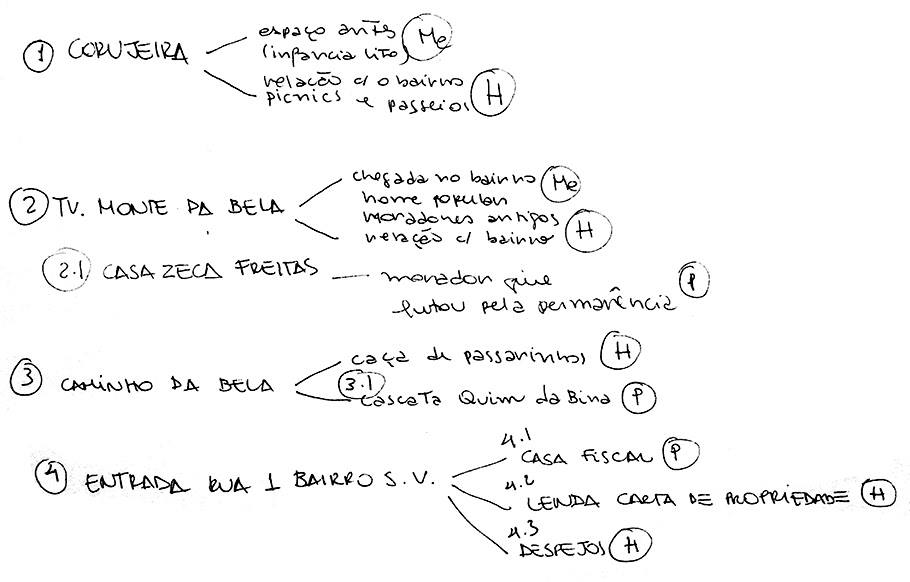 espaço antes
(infância Lito) Me
1 CORUJEIRA
relação c/ o bairro
picnics e passeios H
chegada no bairro Me
nome popular
2 TV. MONTE DA BELA
moradores antigos
relação c/ bairro H
2.1 CASA ZECA FREITAS
morador que
lutou pela permanência P
caça de passarinhos H
3 CAMINHO DA BELA
3.1
Cascata Quim da Bina P
4.1
CASA FISCAL P
4 ENTRADA RUA 1 BAIRRO S. V.
4.2
LENDA CARTA DE PROPRIEDADE H
4.3
DESPEJOS H